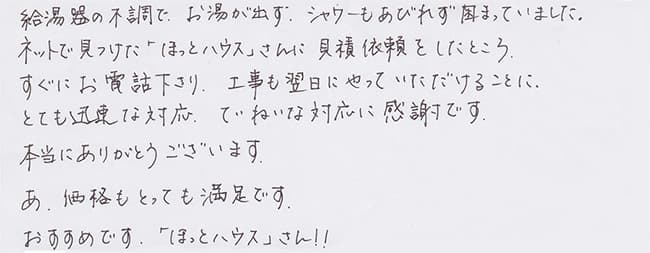 給湯器の不調で、お湯が出ず、シャワーもあびれず困まっていました。
ネットで見つけた「ほっとハウス」さんに見積依頼をしたところ、
すぐにお電話下さり、工事も翌日にやっていただけることに、
とても迅速な対応、ていねいな対応に感謝です。
本当にありがとうございます。
あ、価格もとっても満足です。
おすすめです、「ほっとハウス」さん!!